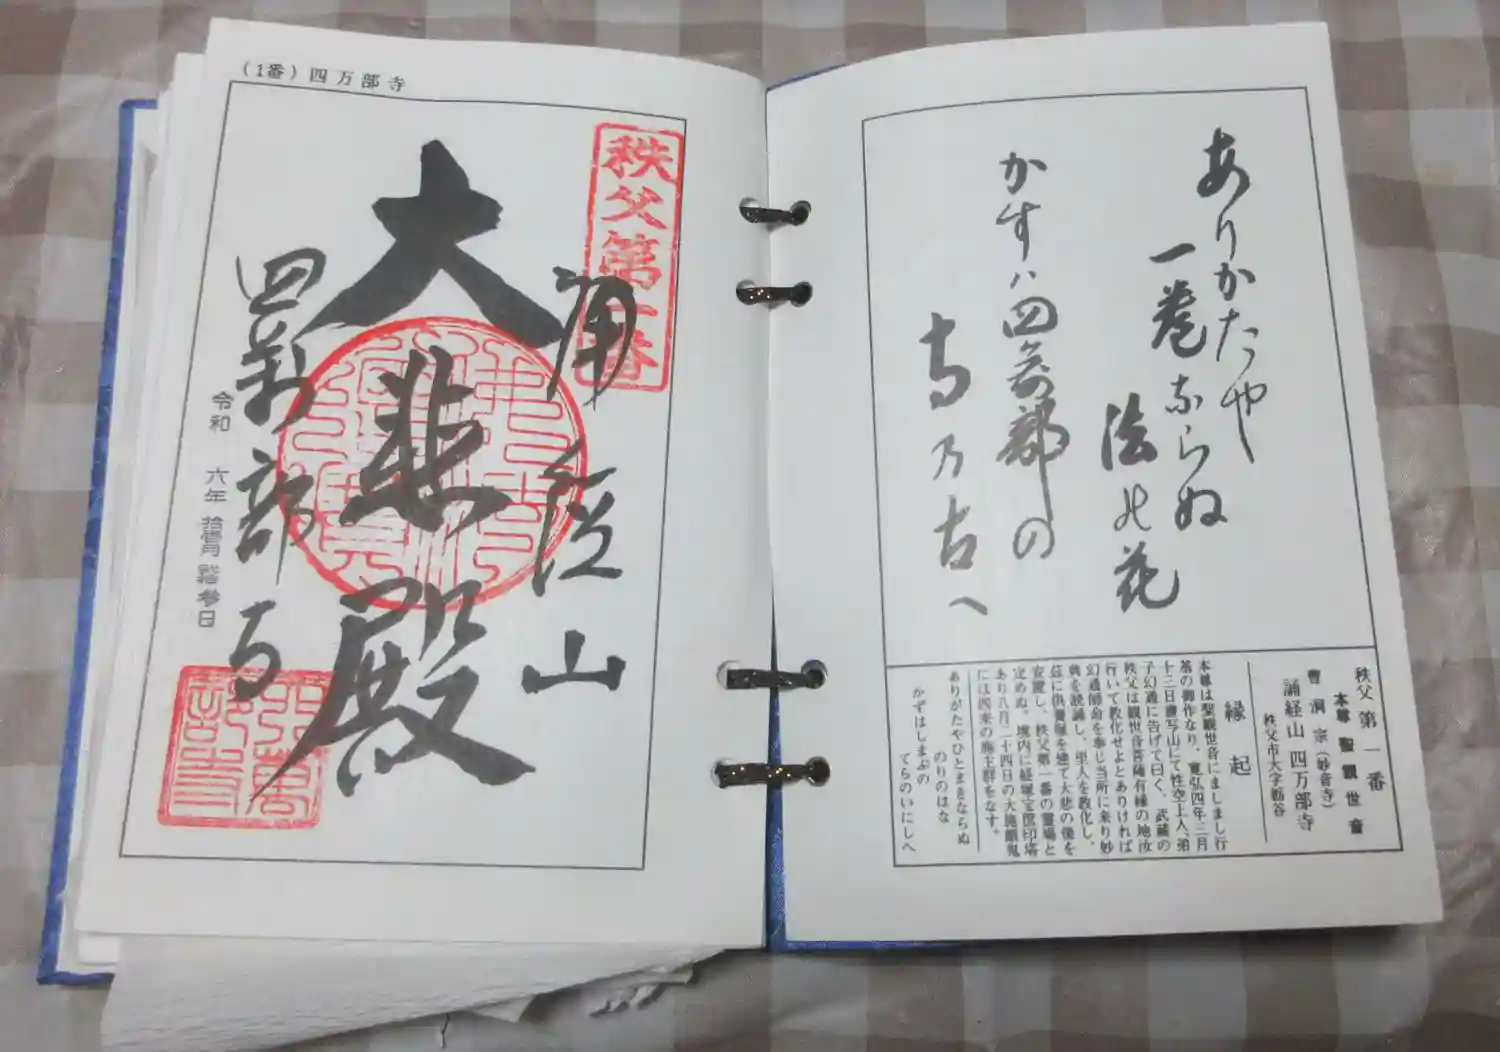 (1番)四万部寺
秩父第一番
誦经山
大悲殿
四萬部寺
令和 六年 拾壹月 参日
ありかたや
一巻ならぬ
法の花
かすハ四萬部の
寺乃古へ
秩父 第一番
本尊 聖観世音
曹洞宗(妙音寺)
誦経山 四万部寺
秩父市大字栃谷
縁起
本尊は聖観世音にましまし行
基の御作なり、寛弘四年三月
十三日書写山にて性空上人、弟
子幻通に告げて曰く、武蔵の
秩父は観世音菩薩有縁の地汝
行いて教化せよとありければ
幻通師命を奉じ当所に来り妙
典を読誦し、里人を教化し、
茲に供養塚を建て大悲の像を
安置し、秩父第一番の霊場と
定めぬ。境内に経塚宝筐印塔
あり八月二十四日の大施餓鬼
には四来の施主群をなす。
ありがたやひとまきならぬ
のりのはな
かずはしまぶの
てらのいにしへ